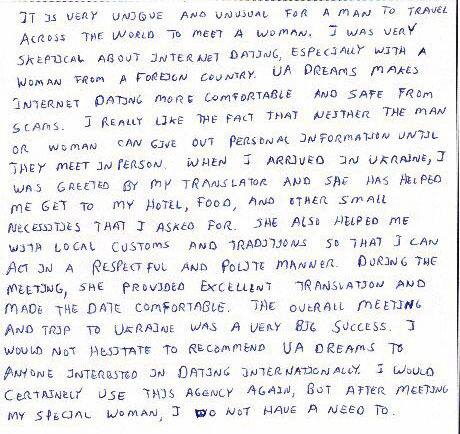 IT IS VERY UNIQUE AND UNUSUAL FOR A MAN TO TRAVEL
ACROSS THE WORLD TO MEET A WOMAN. I WAS VERY
SKEPTICAL ABOUT INTERNET DATING, ESPECIALLY WITH A
WOMAN FROM A FOREIGN COUNTRY. UA DREAMS MAKES
INTERNET DATING MORE COMFORTABLE AND SAFE FROM
SCAMS. I REALLY LIKE THE FACT THAT NEITHER THE MAN
OR WOMAN CAN GIVE OUT PERSONAL INFORMATION UNTIL
THEY MEET IN PERSON. WHEN I ARRIVED IN UKRAINE, I
WAS GREETED BY MY TRANSLATOR AND SHE HAS HELPED
ME GET TO MY HOTEL, FOOD, AND OTHER SMALL
NECESSITIES THAT I ASKED FOR. SHE ALSO HELPED ME
WITH LOCAL CUSTOMS AND TRADITIONS SO THAT I CAN
ACT IN A RESPECTFUL AND POLITE MANNER. DURING THE
MEETING, SHE PROVIDED EXCELLENT TRANSLATION AND
MADE THE DATE COMFORTABLE. THE OVERALL MEETING
AND TRIP TO UKRAINE WAS A VERY BIG SUCCESS. I
WOULD NOT HESITATE TO RECOMMEND UA DREAMS TO
ANYONE INTERESTED IN DATING INTERNATIONALLY. I WOULD
CERTAINELY USE THIS AGENCY AGAIN, BUT AFTER MEETING
MY SPECIAL WOMAN, I DO NOT HAVE A NEED TO.